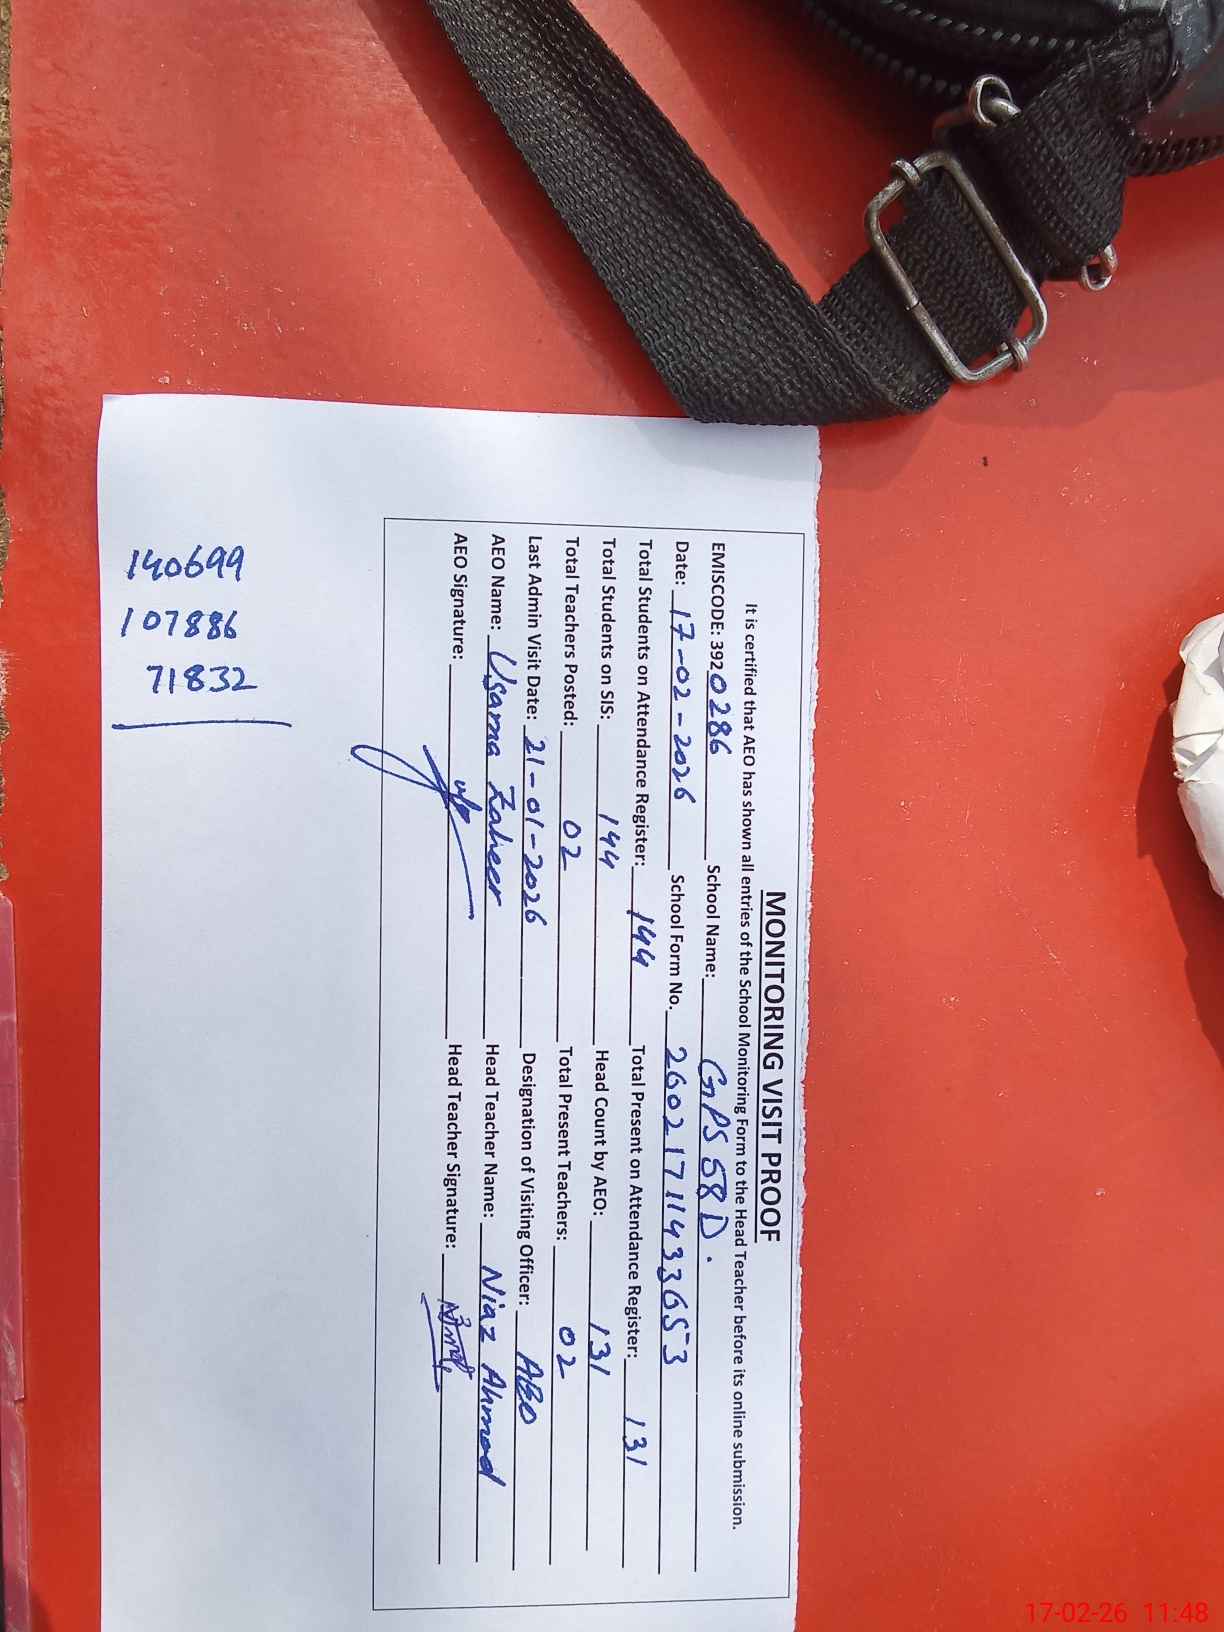 MONITORING VISIT PROOF
It is certified that AEO has shown all entries of the School Monitoring Form to the Head Teacher before its online submission.
EMISCODE: 3920286 School Name: GPS 58 D.
Date: 17-02-2026 School Form No. 260217114336553
Total Students on Attendance Register: 144 Total Present on Attendance Register: 131
Total Students on SIS: 144 Head Count by AEO: 131
Total Teachers Posted: 02 Total Present Teachers: 02
Last Admin Visit Date: 21-01-2026 Designation of Visiting Officer: AEO
AEO Name: Usama Zaheer Head Teacher Name: Niaz Ahmad
AEO Signature: Head Teacher Signature:
140699
107886
71832
17-02-26 11:48